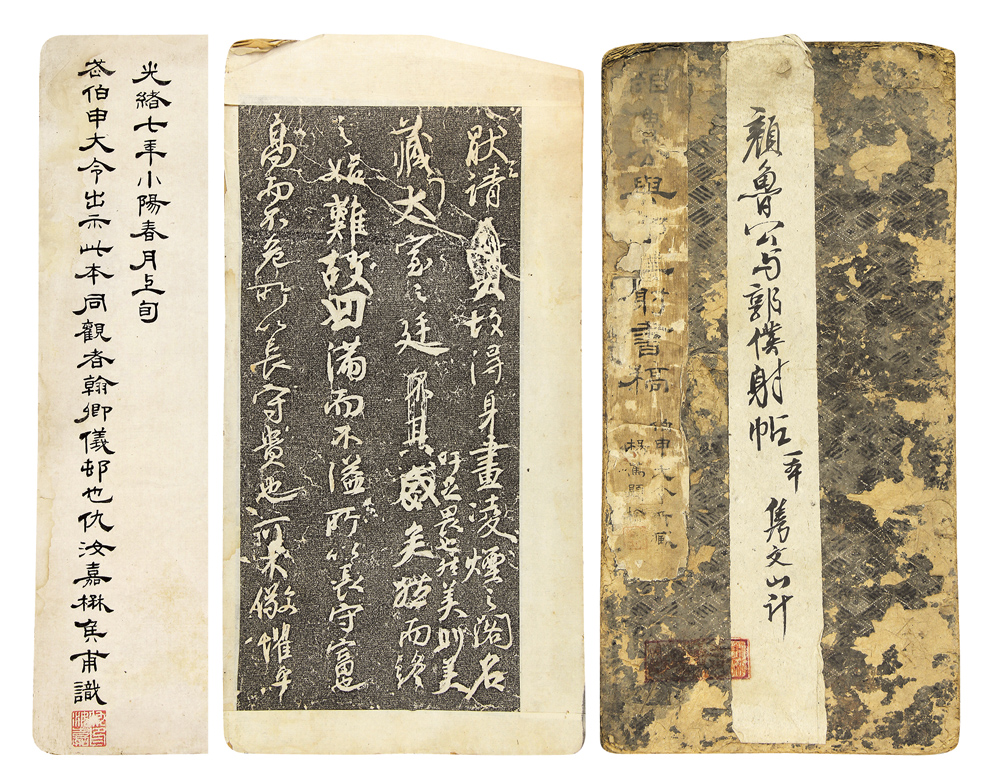 顏魯公与郭僕射帖一本 雋文山計
與 射書稿
伯申大人所藏
猒之請 故得身畫凌煙之閣名
藏太室之廷 其盛矣 然而終
吁足畏也 然美則美矣
之始難故曰滿而不溢所以長守富也
高而不危所以長守貴也可不儆懼乎
光緒七年小陽春月上旬
伯申大令出示此本同觀者翰卿儀邨也仇汝嘉楙隹甫識